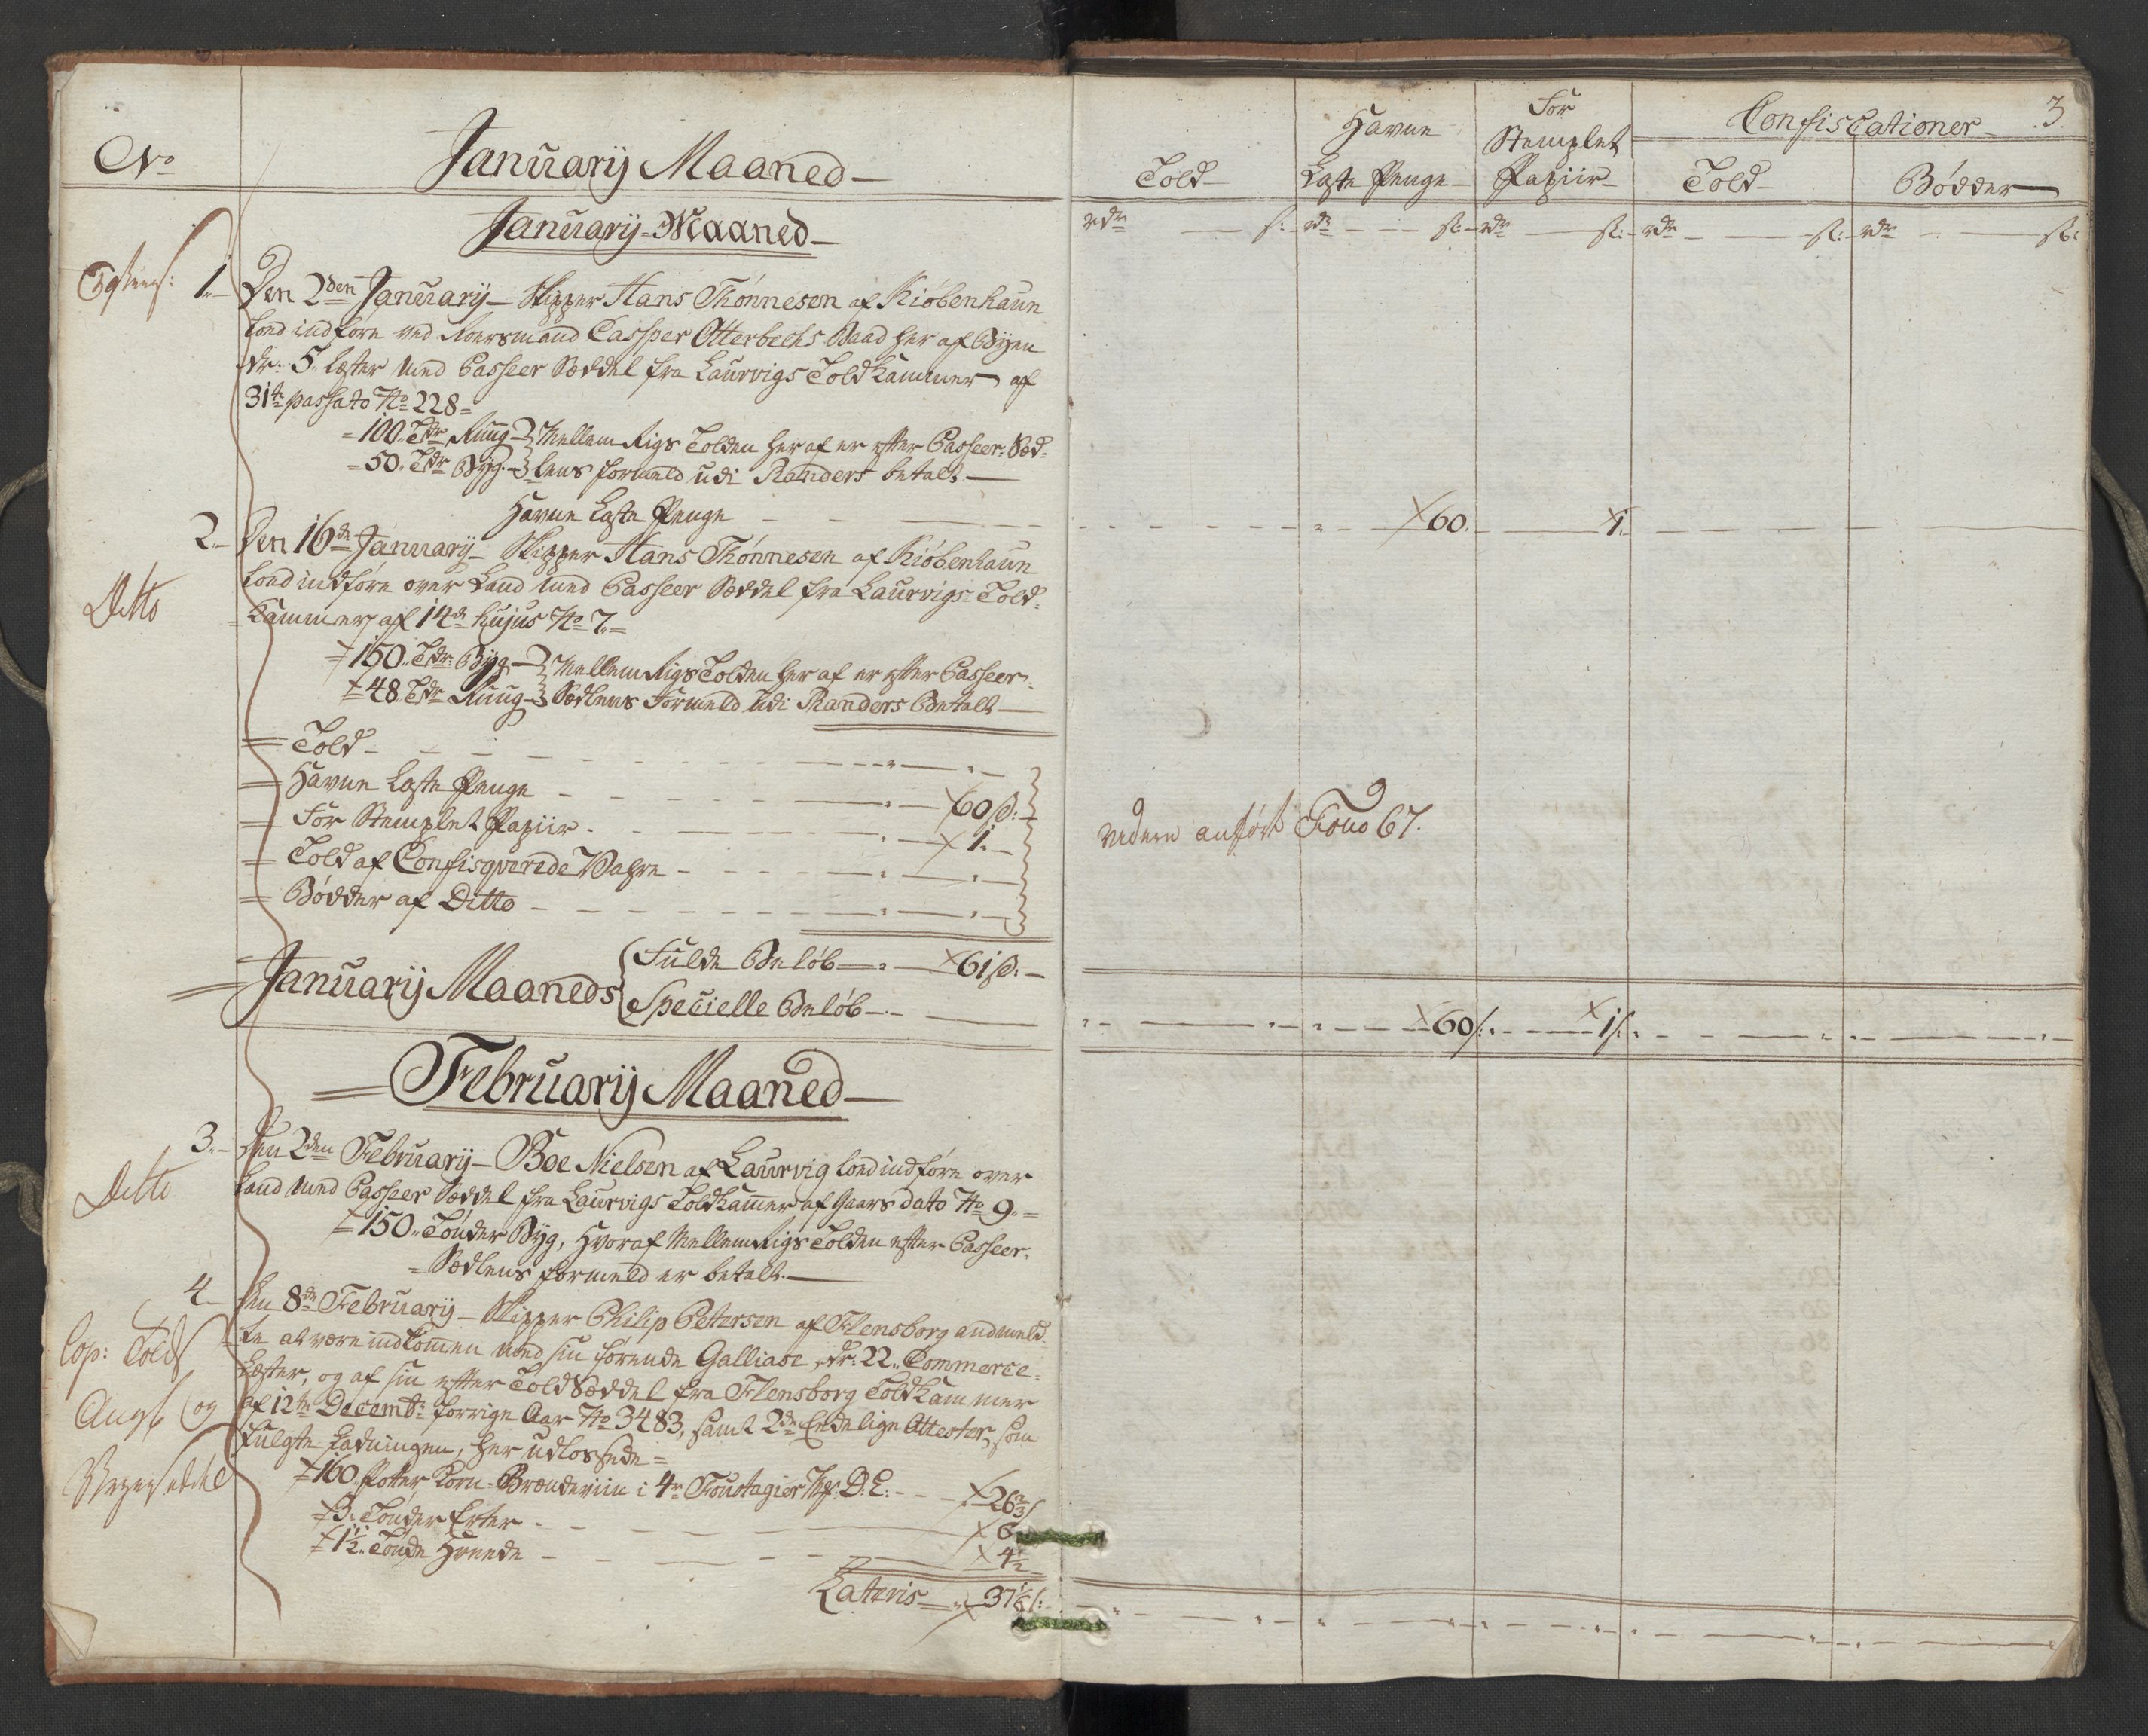 No
Januarij Maaned
Januarij-Maaned
1. Den 2den Januarij Skipper Hans Thönnesen af Kiöbenhaun
lod indföre ved Roersmand Casper Otterbechs Baad her af Byen
dr: 5 Læster med Passeer Sæddel fra Laurvigs Toldkammer af
31te passato No 228=
=100 Tdr Ruug } Mellem Rigs Tolden her af er efter Passeer-Sæd-
=50 Tdr Byg } lens formeld udi Randers betalt
Havne Læste Penge
2. Den 16de Januarij Skipper Hans Thönnesen af Kiöbenhaun
Ditto
lod indföre over Land med Passeer Sæddel fra Laurvigs Told-
kammer af 14de hujus No 7=
150 Tdr: Byg } Mellem Rigs Tolden her af er efter Passeer-
48 Tdr Ruug } Sædlens Formeld udi Randers Betalt
Told
Havne Læste Penge 60 s:
For Stemplet Papiir 1
Told af Confisqverede Vahre
Bödder af Ditto
Januarij Maaneds { Fulde Belöb 61 s:
Specielle Belöb
Februarij Maaned
3. Den 2den Februarij Boe Nielsen af Laurvig lod indföre over
Ditto
Land med Passeer Sæddel fra Laurvigs Toldkammer af Gaars dato No 9=
150 Tönder Byg, hvoraf Mellem Rigs Tolden efter Passeer-
Sædlens formeld er betalt
4. Den 8de Februarij Skipper Philip Petersen af Flensborg andmeld-
te at være indkommen med sin förende Galliase, dr: 22 Commerce-
Cop: Told
Læster, og af sin efter Told Sæddel fra Flensborg Toldkammer
Angl og
af 12te Decembr forrige Aar No 3483, samt 2de Eedelige Attester, som
fulgte Ladningen, her udlossede=
160 Potter Korn-Brændeviin i 4re Foustagier Mrk: D. E: 26 2/3 s
3 Tönder Erter 6
1 1/2 Tönde Hvede 4 1/2
Lateris 37 1/6 s:
3.
Told
Havne
Læste Penge
For
Stemplet
Papiir
Confiscationer
Told
Bödder
rdr s: rdr s: rdr s: rdr s: rdr s:
60. 1.
videre anfört Folio 67.
60 s: 1 s: